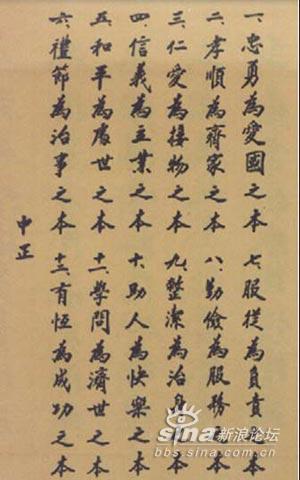 一、忠勇為愛國之本
二、孝順為齊家之本
三、仁愛為接物之本
四、信義為立業之本
五、和平為處世之本
六、禮節為治事之本
七、服從為負責之本
八、勤儉為服務之本
九、整潔為治身之本
十、助人為快樂之本
十一、學問為濟世之本
十二、有恆為成功之本
中正
sina 新浪论坛
bbs.sina.com.cn